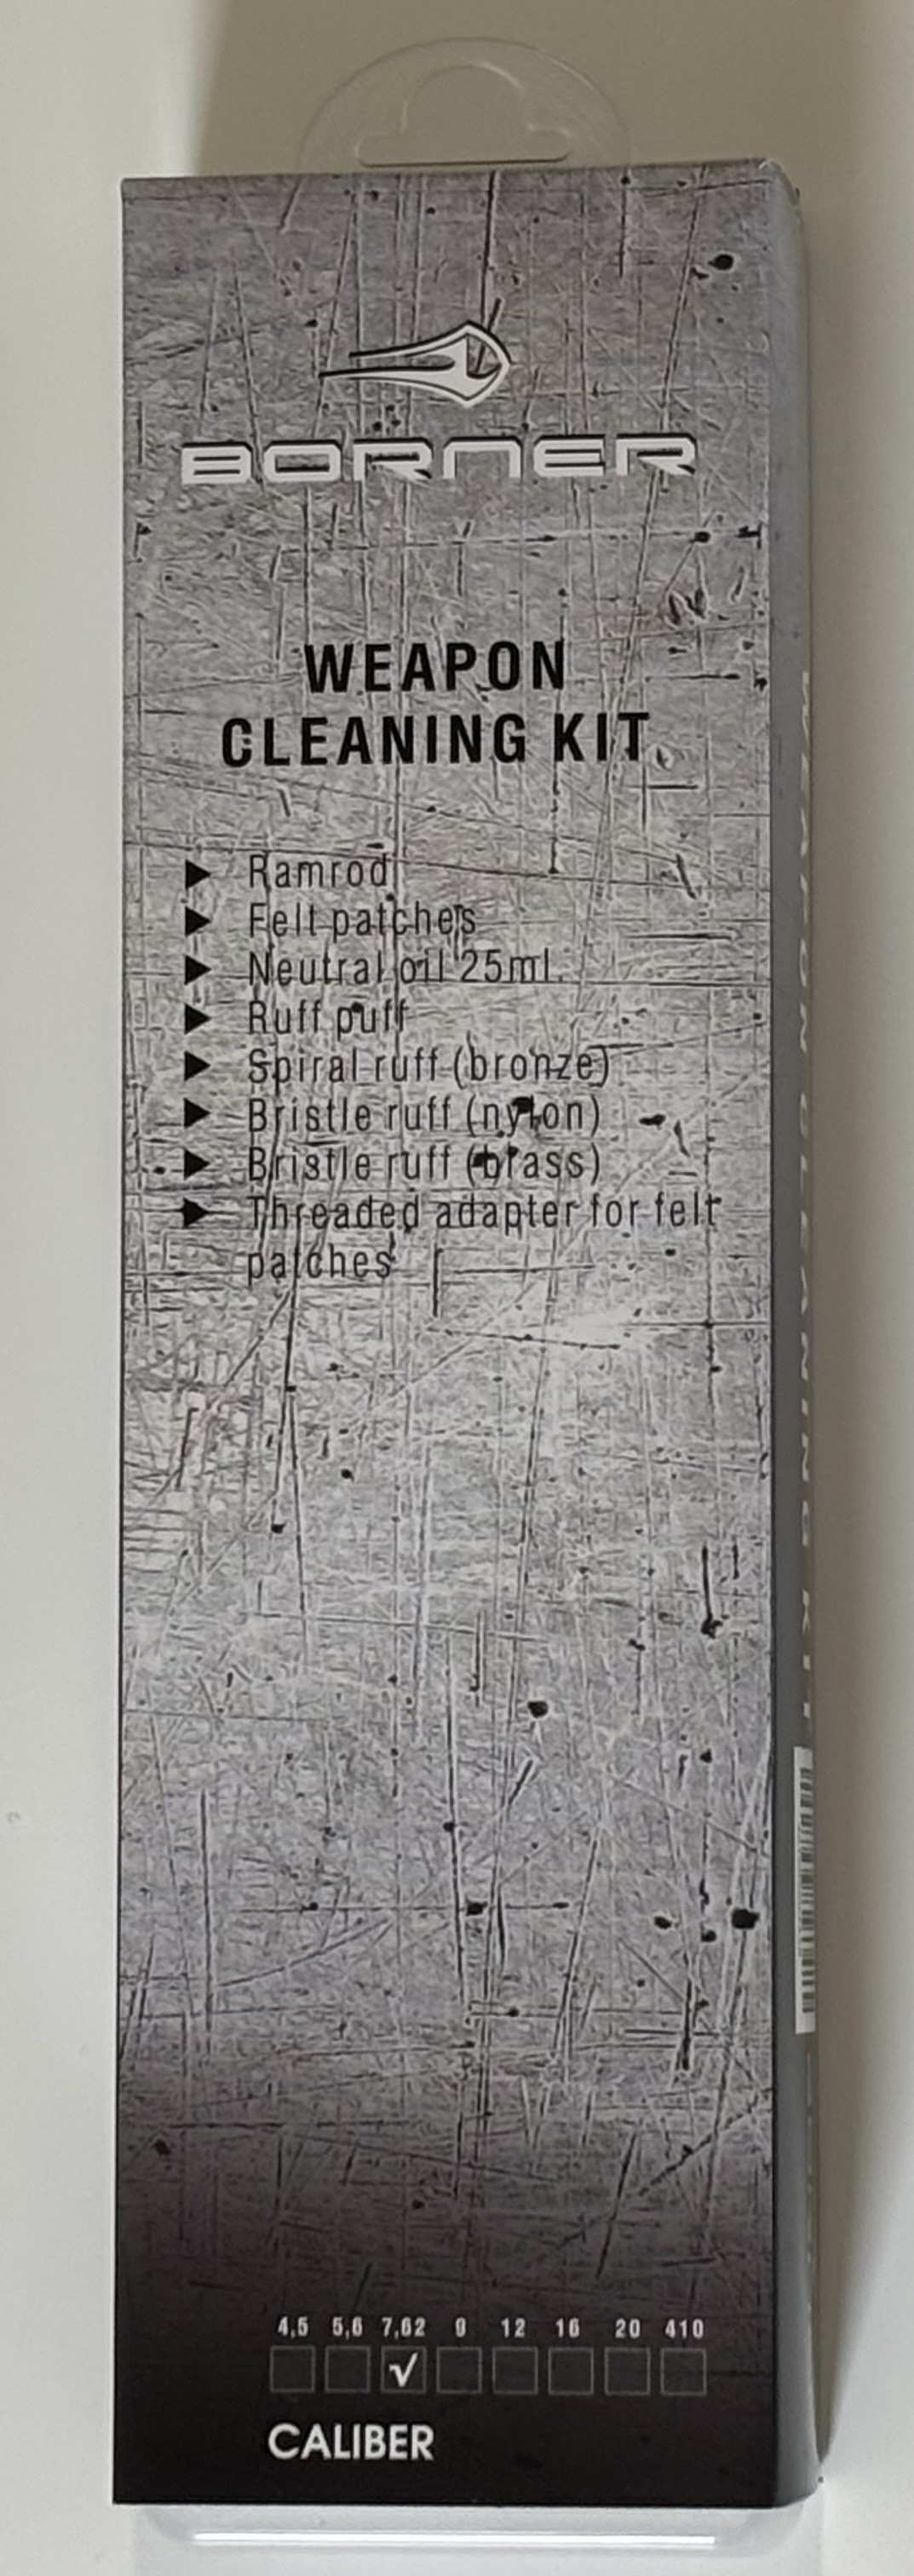 BORNER
WEAPON
CLEANING KIT
Ramrod
Felt patches
Neutral oil 25ml.
Ruff puff
Spiral ruff (bronze)
Bristle ruff (nylon)
Bristle ruff (brass)
Threaded adapter for felt
patches
4,5 5,6 7,62 9 12 16 20 410
√
CALIBER
WEAPON CLEANING KIT